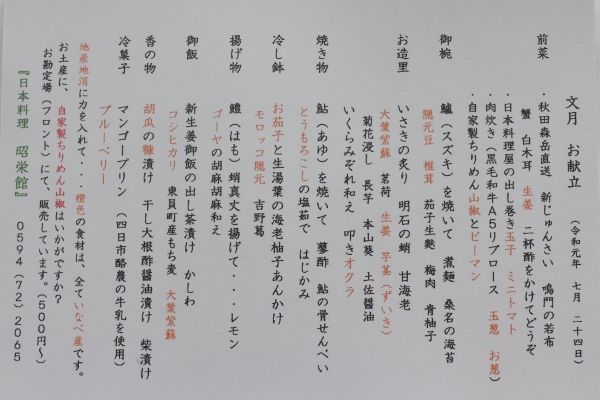 文月 お献立 (令和元年 七月 二十四日)
前菜 ・秋田森岳直送 新じゅんさい 鳴門の若布
蟹 白木耳 生姜 二杯酢をかけてどうぞ
・日本料理屋の出し巻き玉子 ミニトマト
・肉炊き(黒毛和牛A5リブロース 玉葱 お葱)
・自家製ちりめん山椒とピーマン
御椀 鱸(スズキ)を焼いて 煮麺 桑名の海苔
隠元豆 椎茸 茄子生麩 梅肉 青柚子
お造里 いさきの炙り 明石の蛸 甘海老
大葉紫蘇 茗荷 生姜 芋茎(ずいき)
菊花浸し 長芋 本山葵 土佐醤油
いくらみぞれ和え 叩きオクラ
焼き物 鮎(あゆ)を焼いて 蓼酢 鮎の骨せんべい
とうもろこしの塩茹で はじかみ
冷し鉢 お茄子と生湯葉の海老柚子あんかけ
モロッコ隠元 吉野葛
揚げ物 鱧(はも)蛸真丈を揚げて・・・レモン
ゴーヤの胡麻胡麻和え
御飯 新生姜御飯の出し茶漬け かしわ
コシヒカリ 東貝町産もち麦 大葉紫蘇
香の物 胡瓜の糠漬け 干し大根酢醤油漬け 柴漬け
冷菓子 マンゴープリン (四日市酪農の牛乳を使用)
ブルーベリー
地産地消に力を入れて・・・橙色の食材は、全ていなべ産です。
お土産に、自家製ちりめん山椒はいかがですか?
お勘定場(フロント)にて、販売しています。(500円~)
『日本料理 昭栄館』 0594(72)2065